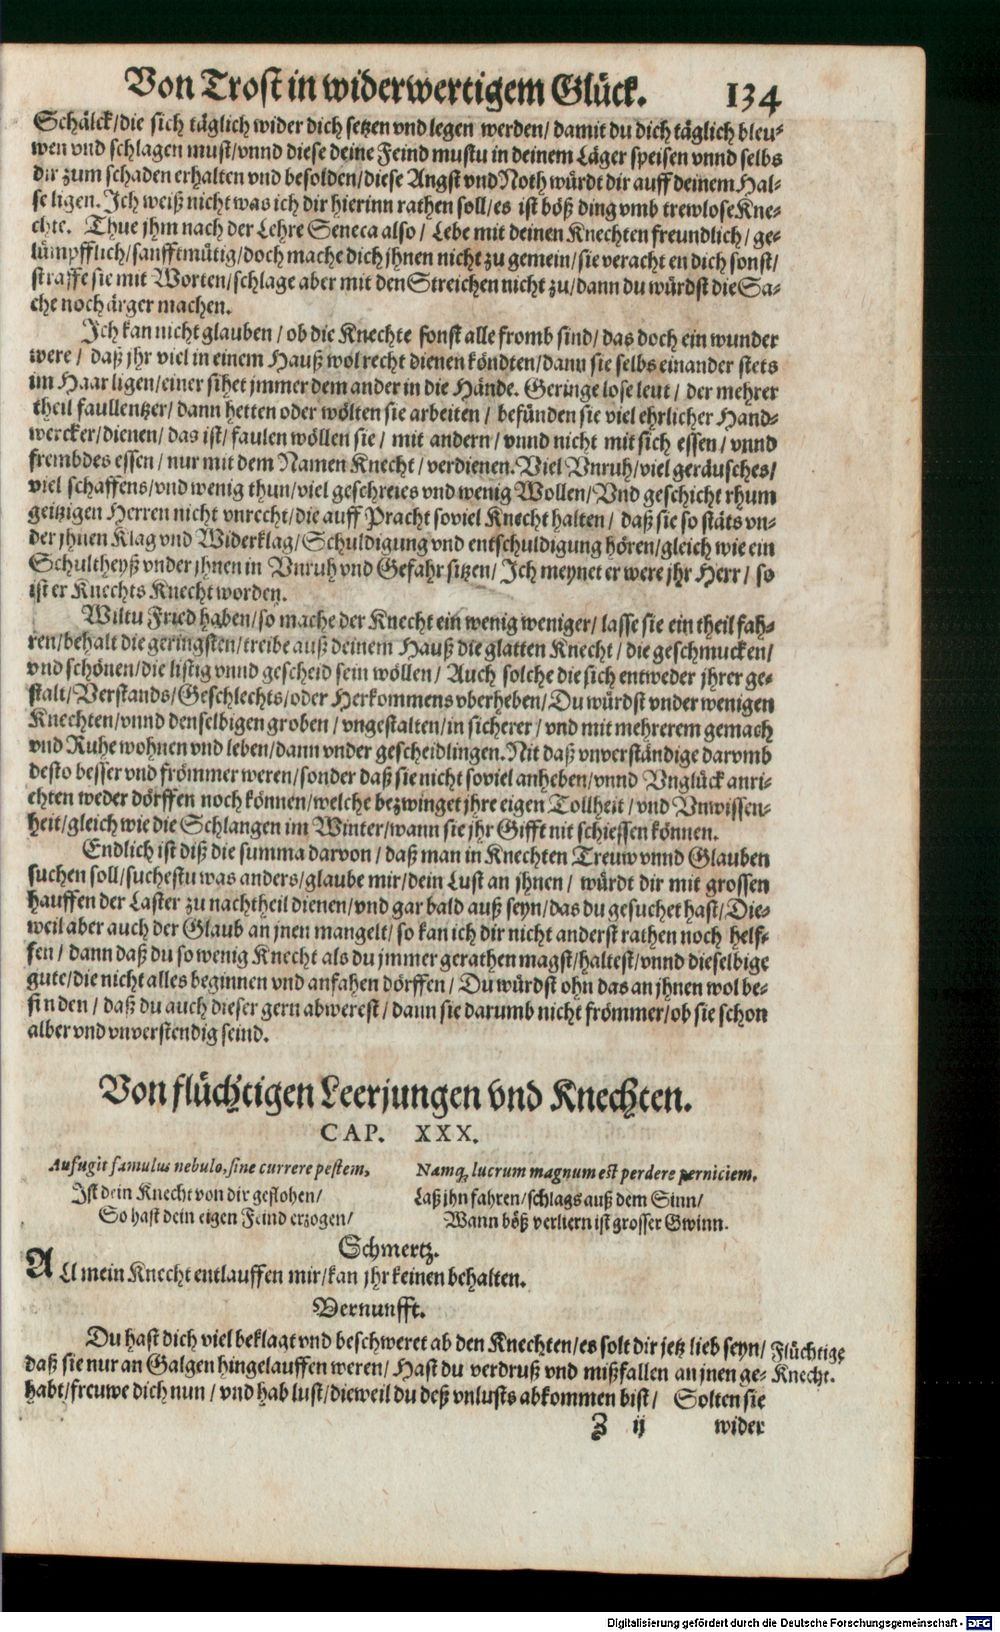 Von Trost in widerwertigem Glück. 134
Schälck/die sich täglich wider dich setzen vnd legen werden/ damit du dich täglich bleu-
wen vnd schlagen must/vnnd diese deine Feind mustu in deinem Läger speisen vnnd selbs
dir zum schaden erhalten vnd besolden/diese Angst vnd Noth würdt dir auff deinem Hal-
se ligen. Ich weiß nicht was ich dir hierinn rathen soll/es ist böß ding vmb trewlose Kne-
chte. Thue jhm nach der Lehre Seneca also/ Lebe mit deinen Knechten freundlich/ ge-
lümpfflich/sanfftmütig/doch mache dich jhnen nicht zu gemein/sie veracht en dich sonst/
straffe sie mit Worten/schlage aber mit den Streichen nicht zu/dann du würdst die Sa-
che noch ärger machen.
Ich kan nicht glauben/ ob die Knechte sonst alle fromb sind/ das doch ein wunder
were/ daß jhr viel in einem Hauß wol recht dienen köndten/dann sie selbs einander stets
im Haar ligen/einer sihet jmmer dem ander in die Hände. Geringe lose leut/ der mehrer
theil faullentzer/ dann hetten oder wölten sie arbeiten/ befünden sie viel ehrlicher Hand-
wercker/dienen/ das ist/ faulen wöllen sie/ mit andern/ vnnd nicht mit sich essen/ vnnd
frembdes essen/ nur mit dem Namen Knecht/ verdienen. Viel Vnruh/viel geräusches/
viel schaffens/vnd wenig thun/viel geschreies vnd wenig Wollen/Vnd geschicht rhum
geitzigen Herren nicht vnrecht/die auff Pracht soviel Knecht halten/ daß sie so stäts vn-
der jhnen Klag vnd Widerklag/Schuldigung vnd entschuldigung hören/gleich wie ein
Schultheyß vnder jhnen in Vnruh vnd Gefahr sitzen/ Ich meynet er were jhr Herr/ so
ist er Knechts Knecht worden.
Wiltu Fried haben/so mache der Knecht ein wenig weniger/ lasse sie ein theil fah-
ren/behalt die geringsten/treibe auß deinem Hauß die glatten Knecht/ die geschmucken/
vnd schönen/die listig vnnd gescheid sein wöllen/ Auch solche die sich entweder jhrer ge-
stalt/Verstands/Geschlechts/oder Herkommens vberheben/Du würdst vnder wenigen
Knechten/vnnd denselbigen groben/ vngestalten/in sicherer/ vnd mit mehrerem gemach
vnd Ruhe wohnen vnd leben/dann vnder gescheidlingen. Nit daß vnverständige darvmb
desto besser vnd frömmer weren/sonder daß sie nicht soviel anheben/vnnd Vnglück anri-
chten weder dörffen noch können/welche bezwinget jhre eigen Tollheit/ vnd Vnwissen-
heit/gleich wie die Schlangen im Winter/wann sie jhr Gifft nit schiessen können.
Endlich ist diß die summa darvon/ daß man in Knechten Treuw vnnd Glauben
suchen soll/suchestu was anders/glaube mir/dein Lust an jhnen/ würdt dir mit grossen
hauffen der Laster zu nachtheil dienen/vnd gar bald auß seyn/das du gesuchet hast/Die-
weil aber auch der Glaub an jnen mangelt/so kan ich dir nicht anderst rathen noch helf-
fen/ dann daß du so wenig Knecht als du jmmer gerathen magst/haltest/vnnd dieselbige
gute/die nicht alles beginnen vnd anfahen dörffen/ Du würdst ohn das an jhnen wol be-
finden/ daß du auch dieser gern abwerest/ dann sie darumb nicht frömmer/ob sie schon
alber vnd vnverstendig seind.
Von flüchtigen Leerjungen vnd Knechten.
CAP. XXX.
Aufugit famulus nebulo, sine currere pestem,
Namq; lucrum magnum est perdere perniciem.
Ist dein Knecht von dir geflohen/
So hast dein eigen Feind erzogen/
Laß jhn fahren/schlags auß dem Sinn/
Wann böß verliern ist grosser Gwinn.
Schmertz.
All mein Knecht entlauffen mir/kan jhr keinen behalten.
Vernunfft.
Du hast dich viel beklagt vnd beschweret ab den Knechten/es solt dir jetz lieb seyn/ Flüchtige
daß sie nur an Galgen hingelauffen weren/ Hast du verdruß vnd mißfallen an jnen ge- Knecht.
habt/freuwe dich nun/ vnd hab lust/dieweil du deß vnlusts abkommen bist/ Solten sie
Z ij wider
Digitalisierung gefördert durch die Deutsche Forschungsgemeinschaft - DFG